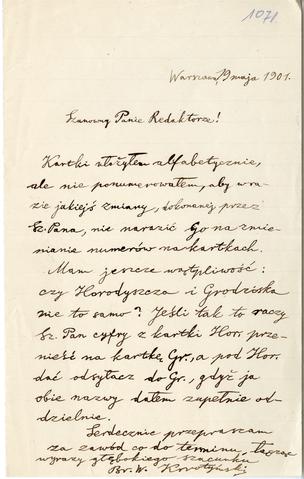 1071
Warszawa, 19 maja 1901.
Szanowny Panie Redaktorze!
Kartki ułożyłem alfabetycznie,
ale nie ponumerowałem, aby w ra-
zie jakiejś zmiany, dokonanej przez
Sz. Pana, nie narazić Go na zmie-
nianie numerów na kartkach.
Mam jeszcze wątpliwość:
czy Horodyszcza i Grodziska
nie to samo? Jeśli tak to raczy
Sz. Pan cyfry z kartki Hor. prze-
nieść na kartkę Gr., a pod Hor.
dać odsyłacz do Gr., gdyż ja
obie nazwy dałem zupełnie od-
dzielnie.
Serdecznie przepraszam
za zawód co do terminu, łącząc
wyrazy głębokiego szacunku
Br. W. Korotyński